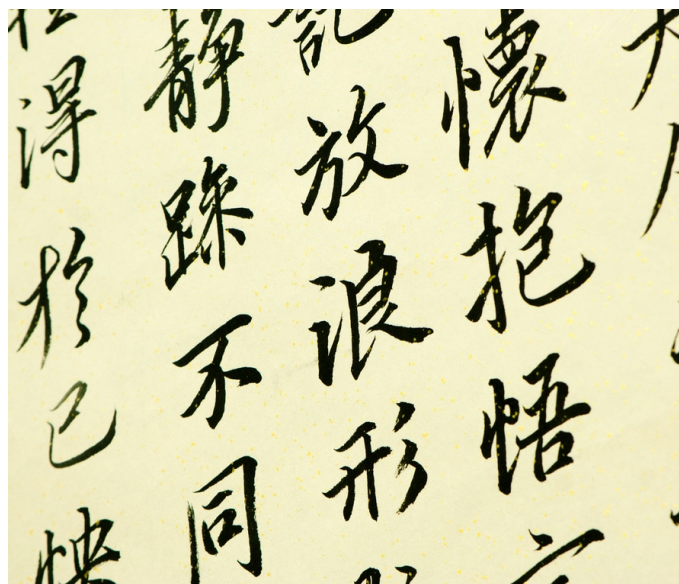 懷抱悟
託放浪形
靜躁不同
得於己怏